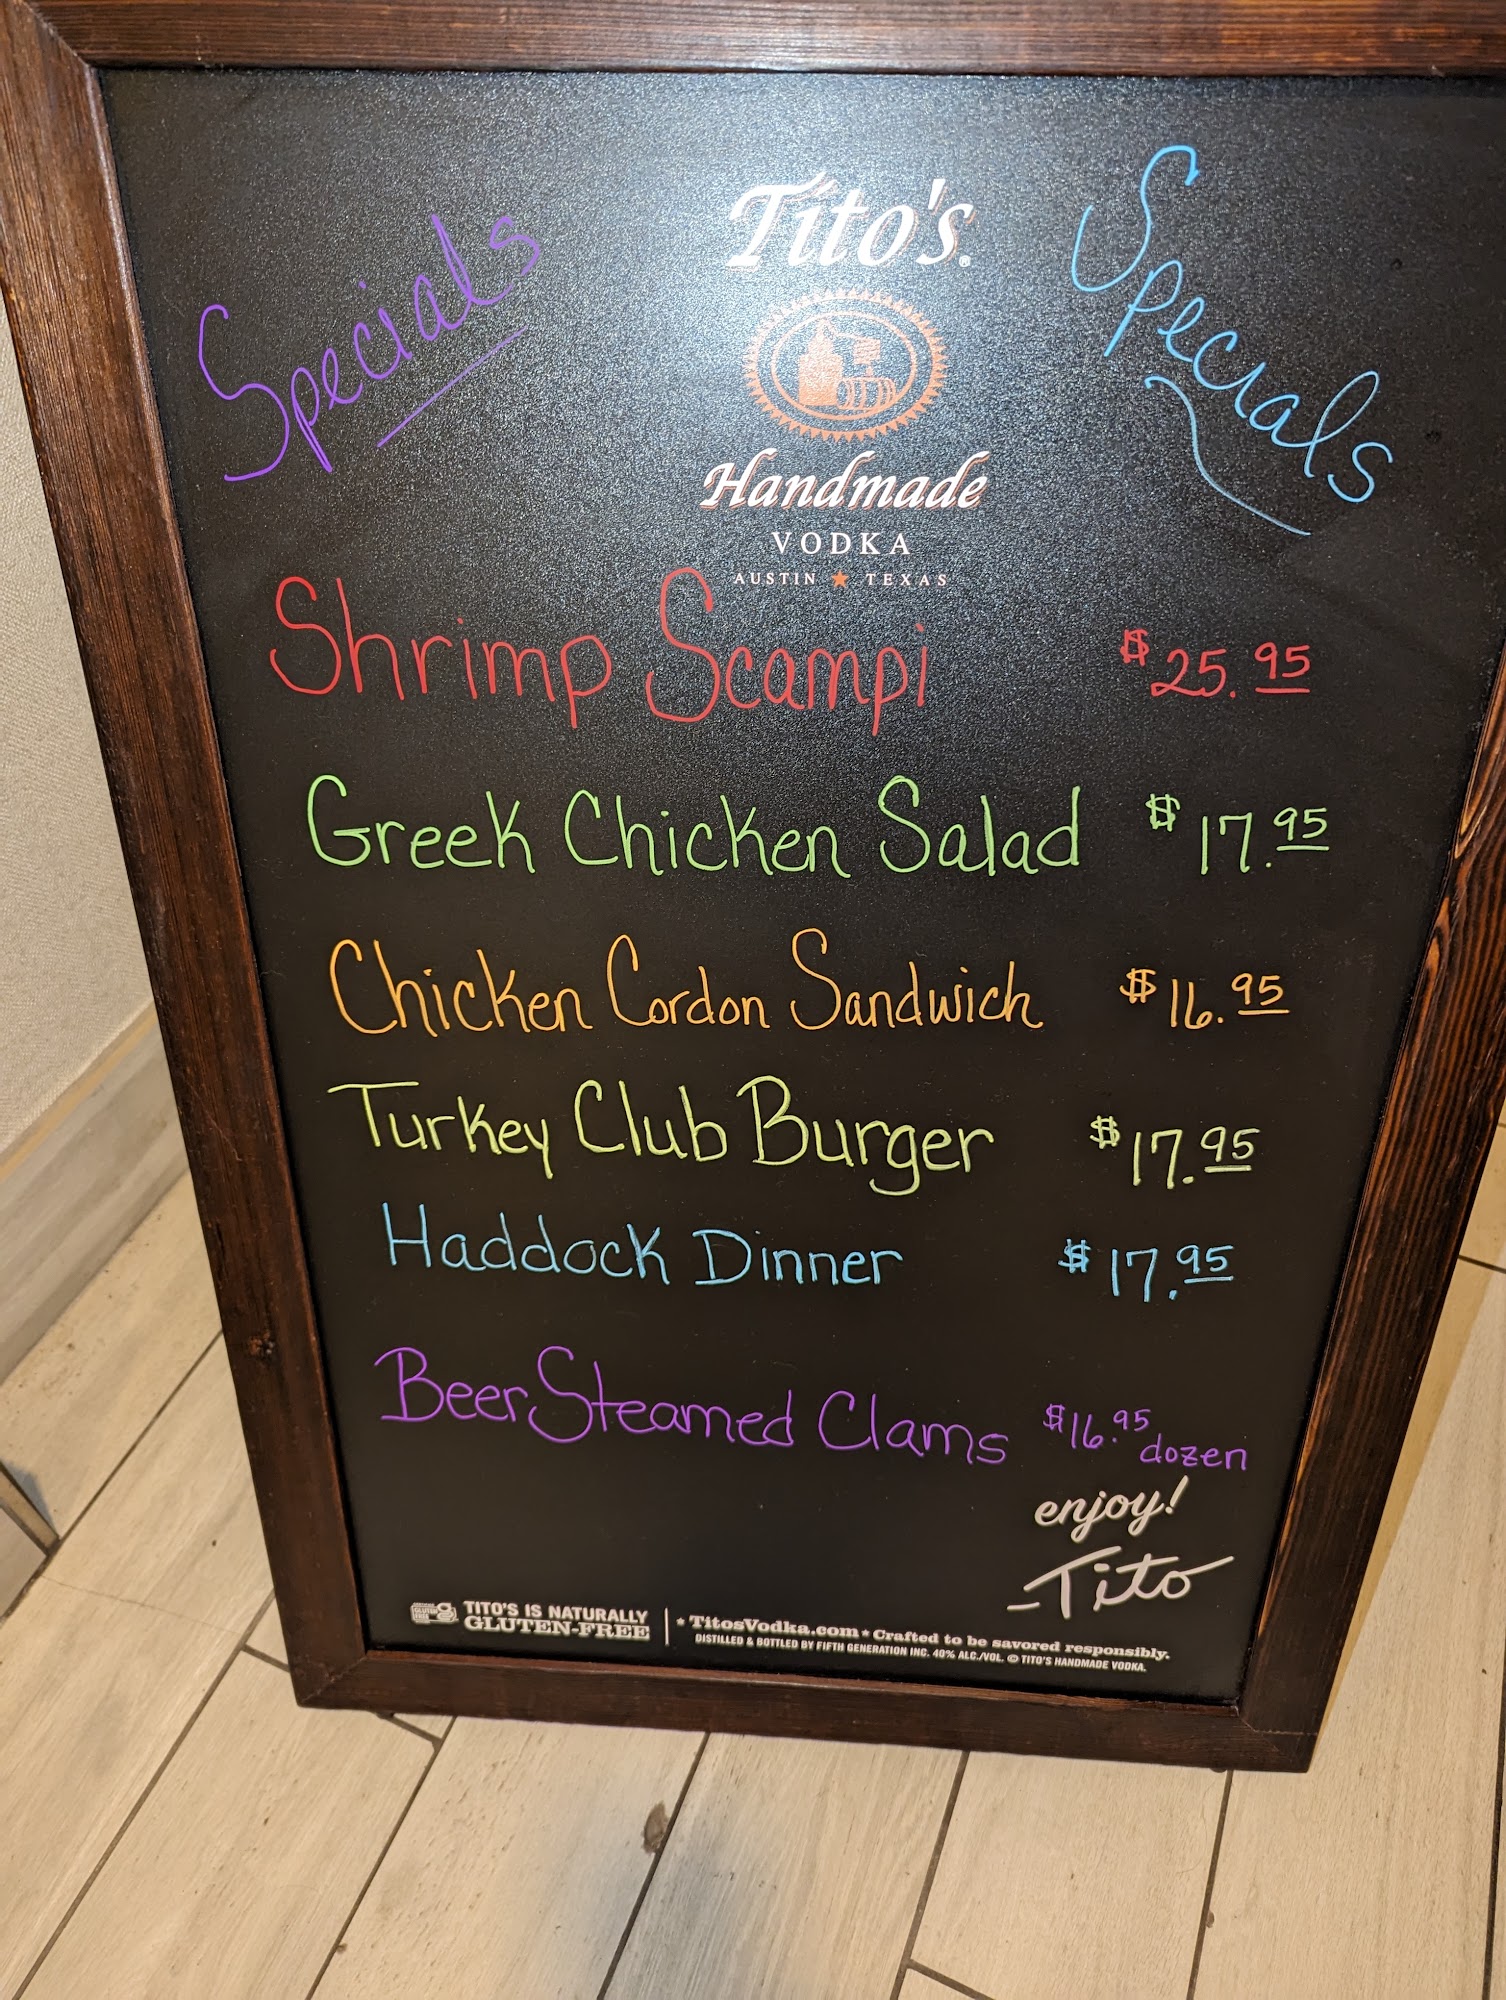 Specials
Tito's®
Specials
Handmade
VODKA
AUSTIN ★ TEXAS
Shrimp Scampi $25.95
Greek Chicken Salad $17.95
Chicken Cordon Sandwich $16.95
Turkey Club Burger $17.95
Haddock Dinner $17.95
Beer Steamed Clams $16.95 dozen
enjoy!
-Tito
TITO'S IS NATURALLY
GLUTEN-FREE
★ TitosVodka.com ★ Crafted to be savored responsibly.
DISTILLED & BOTTLED BY FIFTH GENERATION INC. 40% ALC./VOL. © TITO'S HANDMADE VODKA.